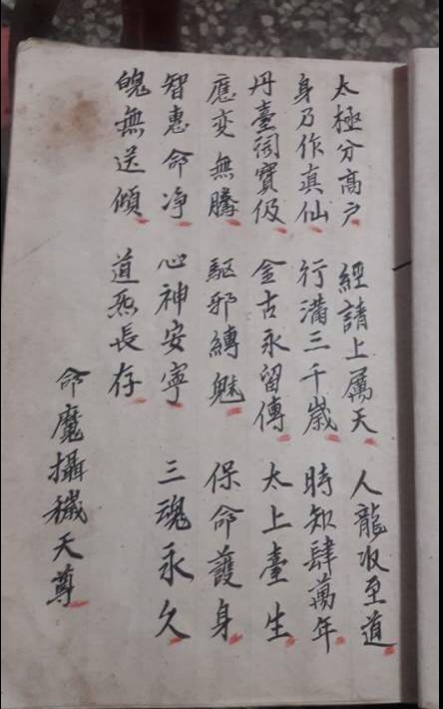 太極分高戶 經請上屬天 人龍收至道
身乃作真仙 行滿三千歲 時知肆萬年
丹臺祠寶伋 金古永留傳 太上臺生
應变無騰 驅邪縳魅 保命護身
智惠命净 心神安寧 三魂永久
魄無送傾 道炁長存
命魔攝穢天尊